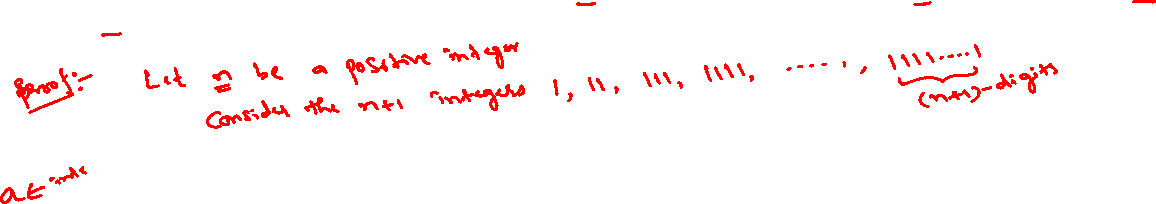 Proof:- Let n be a positive integer
Consider the n+1 integers 1, 11, 111, 1111, ....., 1111....1
(n+1)-digits